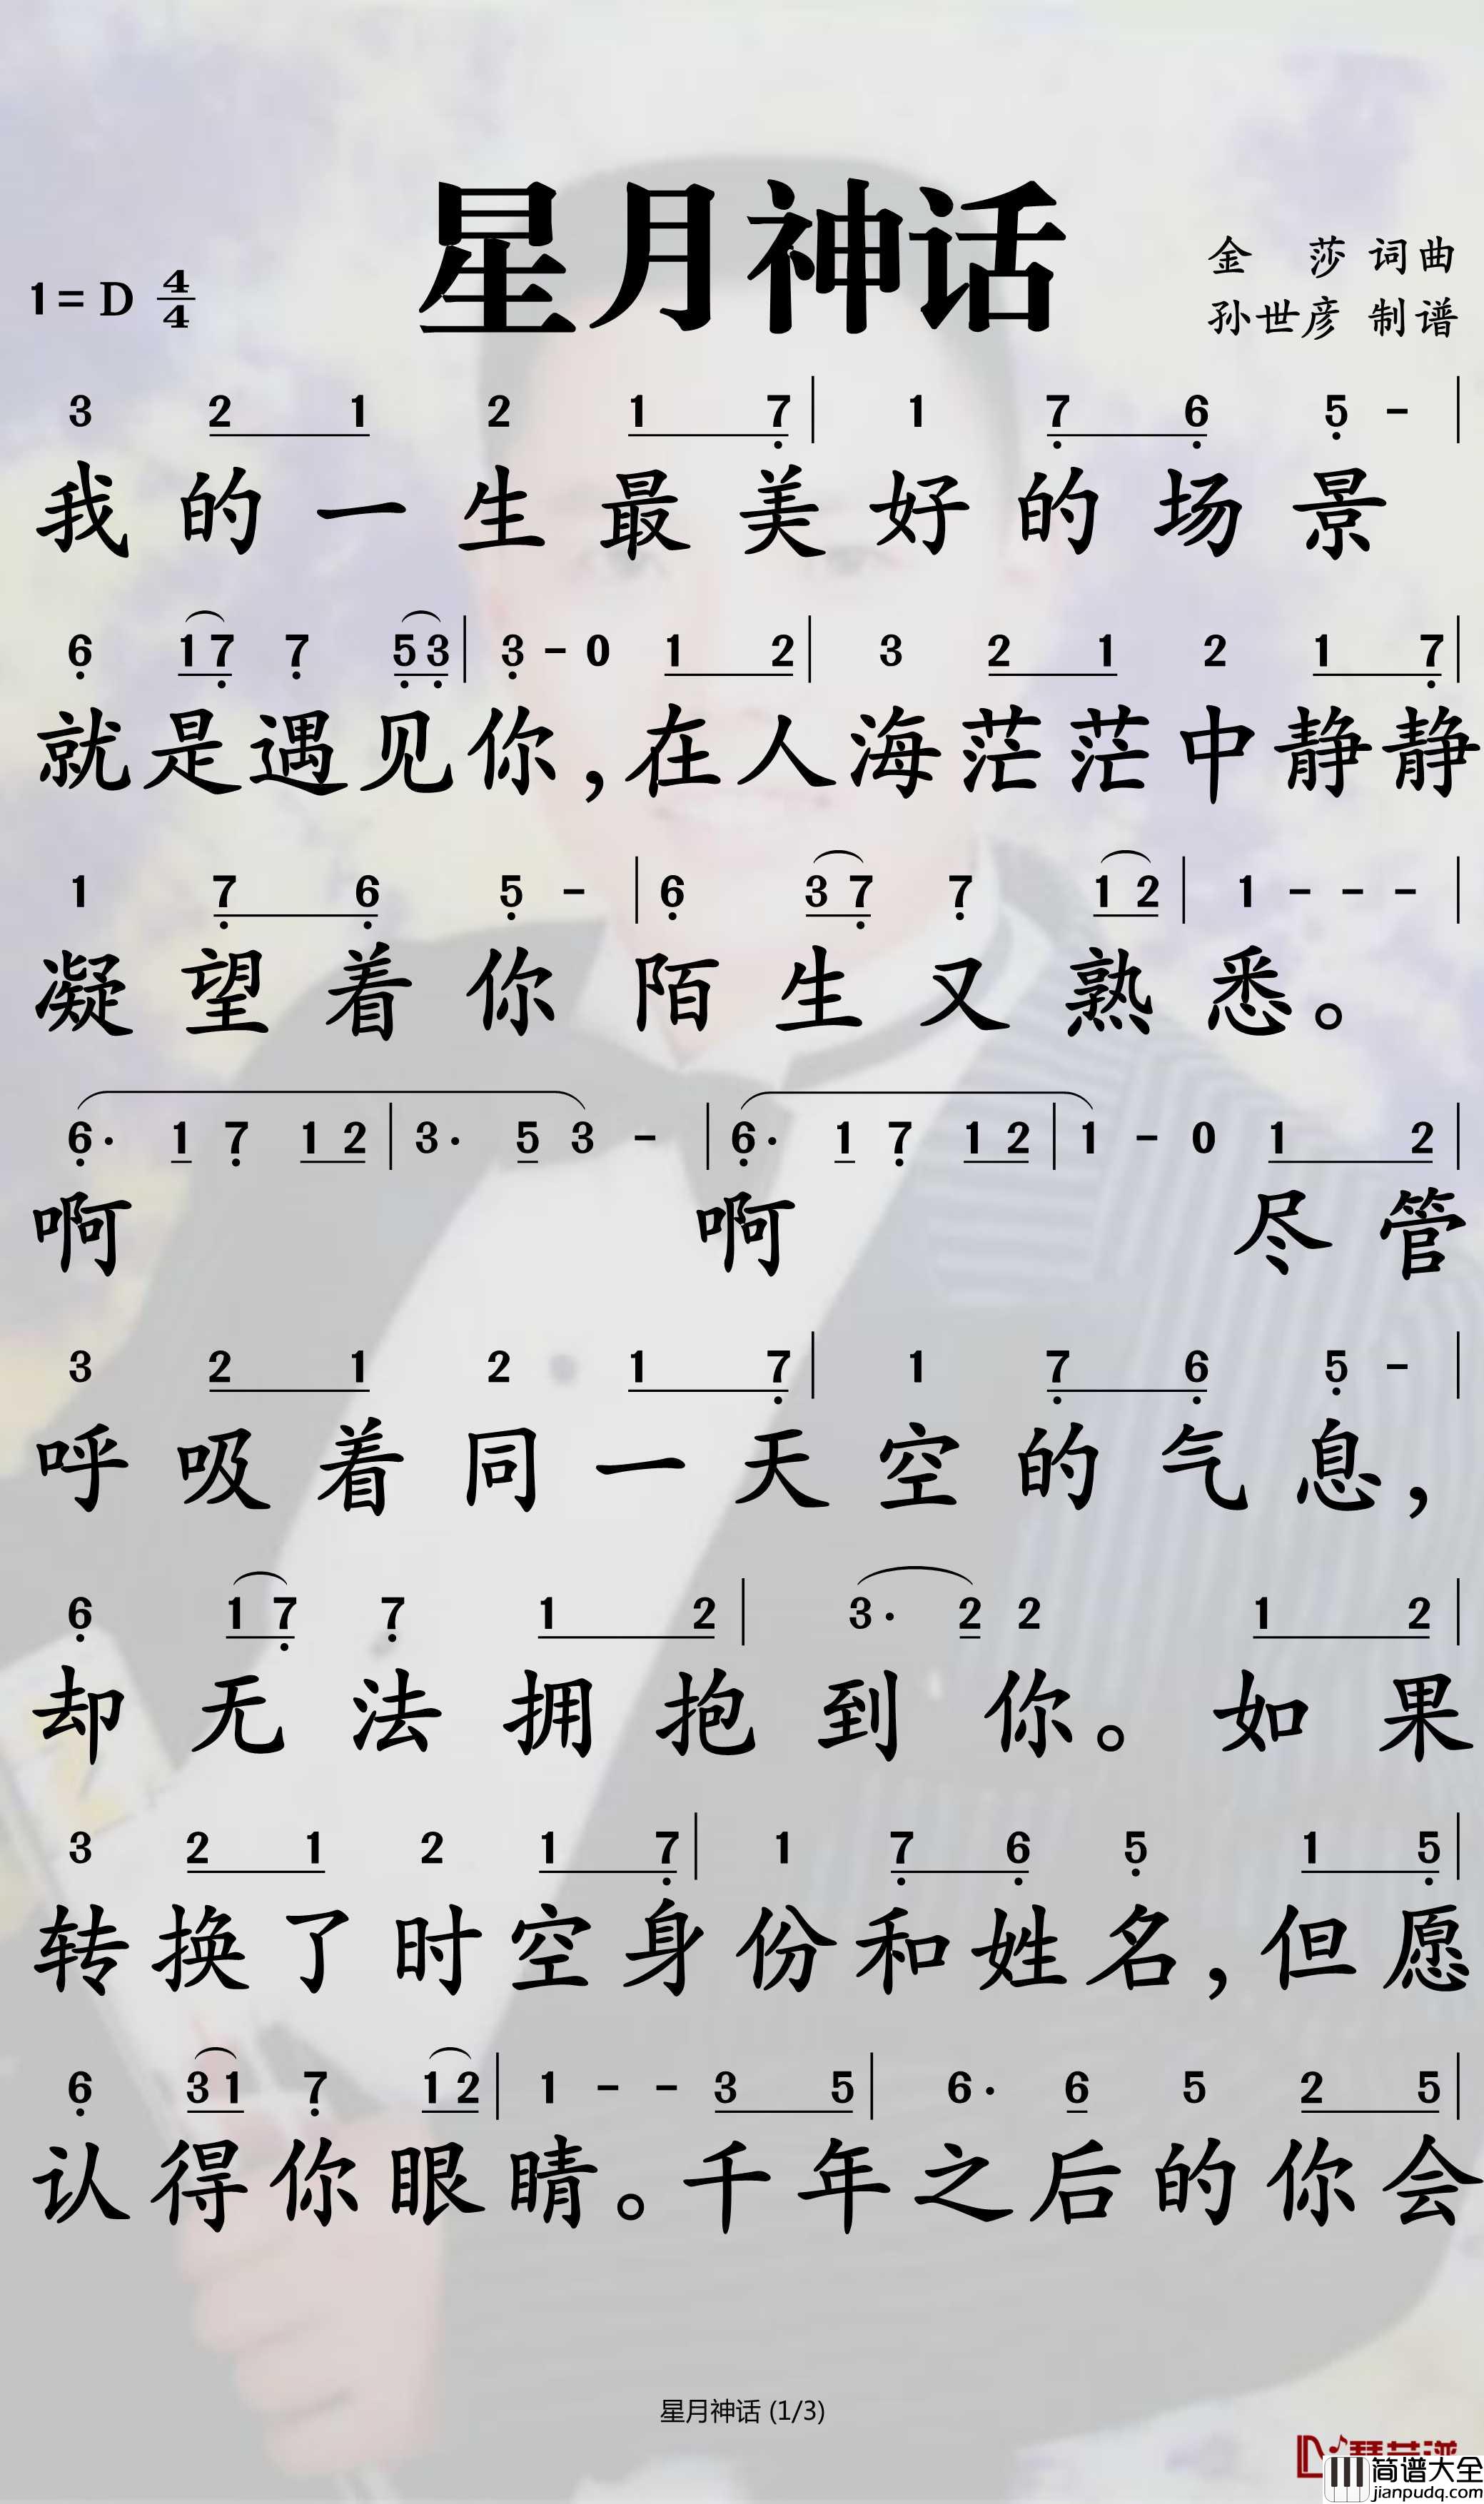 星月神话
金 莎 词曲
1=D 4/4
孙世彦 制谱
3 2 1 2 1 7 | 1 7 6 5 - |
我的一生最美好的场景
6 1 7 7 5 3 | 3 - 0 1 2 | 3 2 1 2 1 7 |
就是遇见你,在人海茫茫中静静
1 7 6 5 - | 6 3 7 7 1 2 | 1 - - - |
凝望着你陌生又熟悉。
6· 1 7 1 2 | 3· 5 3 - | 6· 1 7 1 2 | 1 - 0 1 2 |
啊 啊 尽管
3 2 1 2 1 7 | 1 7 6 5 - |
呼吸着同一天空的气息,
6 1 7 7 1 2 | 3· 2 2 1 2 |
却无法拥抱到你。如果
3 2 1 2 1 7 | 1 7 6 5 1 5 |
转换了时空身份和姓名,但愿
6 3 1 7 1 2 | 1 - - 3 5 | 6· 6 5 2 5 |
认得你眼睛。千年之后的你会
星月神话 (1/3)
简谱大全
jianpudq.com